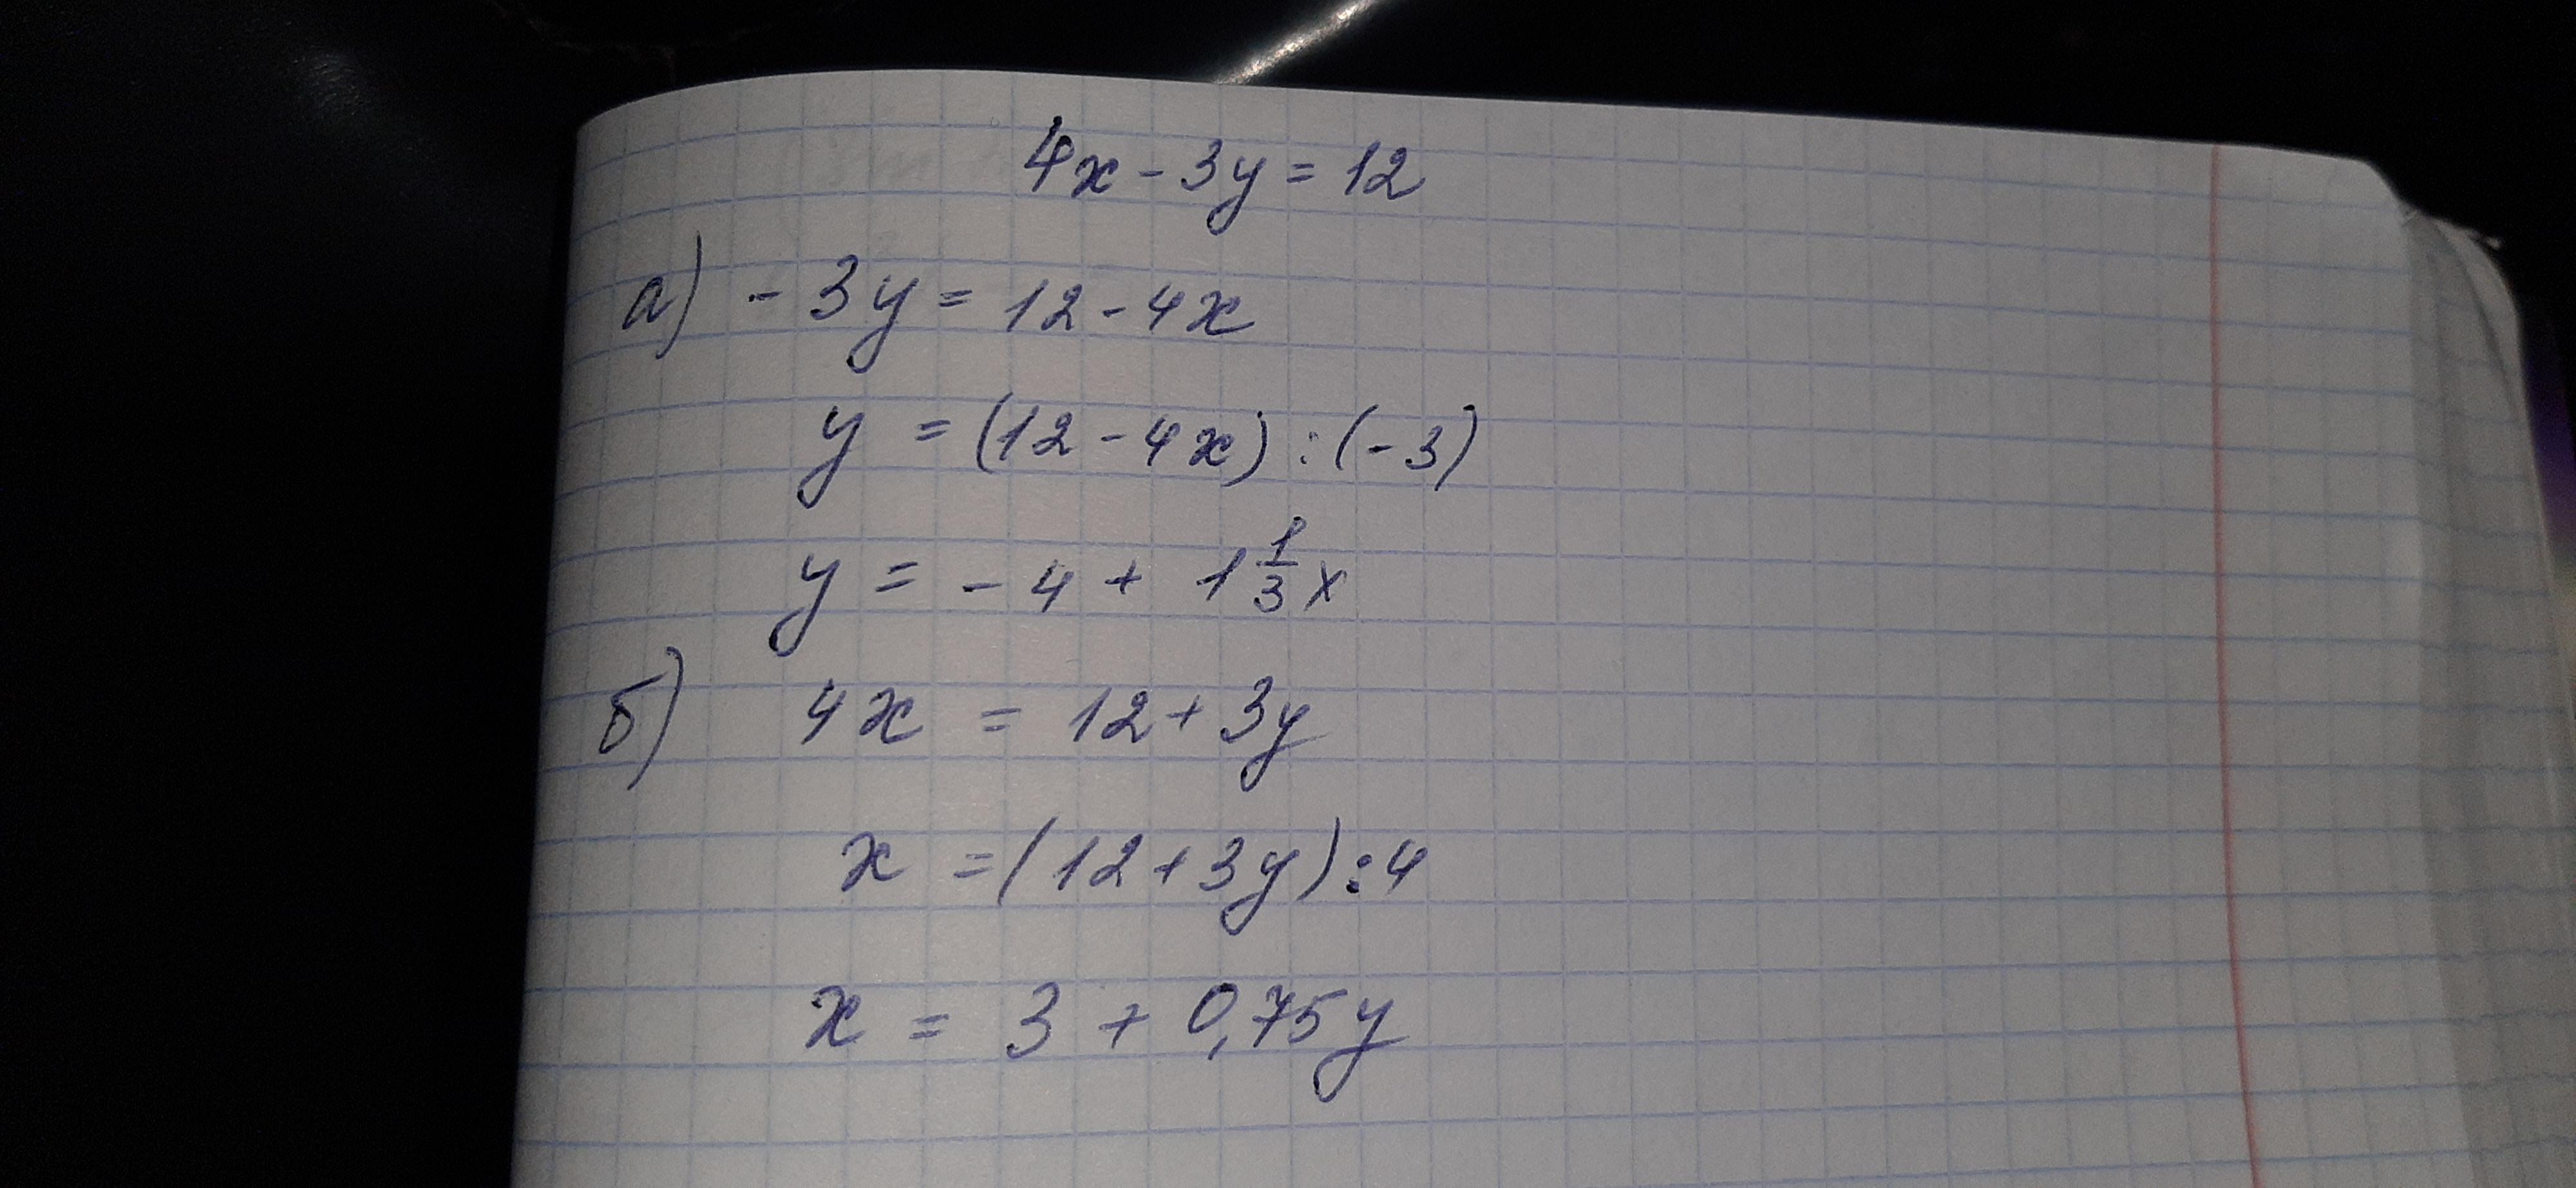 4x - 3y = 12
а) - 3y = 12 - 4x
y = (12 - 4x) : (-3)
y = - 4 + 1 1/3 x
б) 4x = 12 + 3y
x = (12 + 3y) : 4
x = 3 + 0,75y